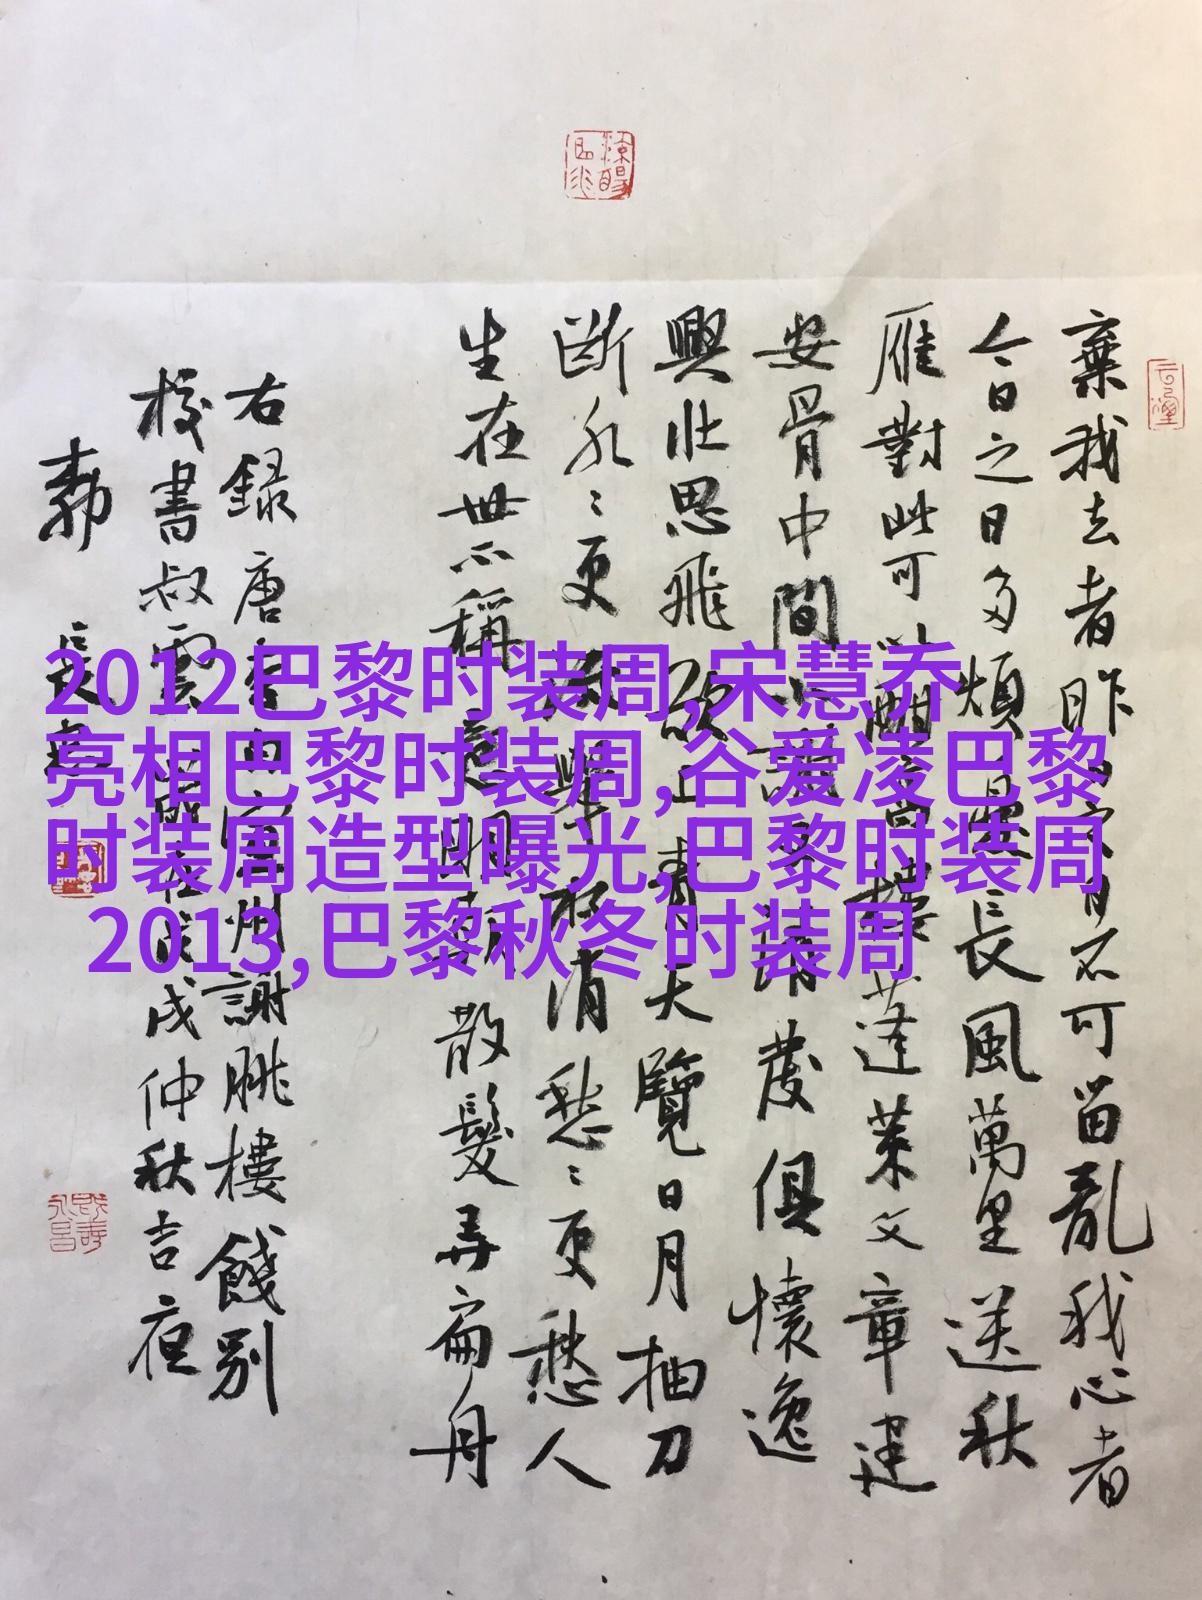 2012巴黎时装周,宋慧乔
亮相巴黎时装周,谷爱凌巴黎
时装周造型曝光,巴黎时装周
2013,巴黎秋冬时装周
棄我去者昨日之日不可留亂我心者
今日之日多煩憂長風萬里送秋
雁對此可以酣高樓蓬萊文章建
安骨中間小謝又清發俱懷逸
興壯思飛欲上青天覽日月抽刀
斷水〻更流舉杯消愁〻更愁人
生在世不稱意明朝散髮弄扁舟
右録唐李白宣州謝脁樓餞別
校書叔雲歲在戊戌仲秋吉夜